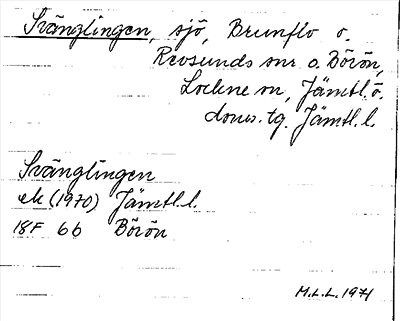 Svänglingen, sjö, Brunflo o.
Revsunds snr o. Börön,
Lockne sn, Jämtl. ö.
doms. tg. Jämtl. l.
Svänglingen
ek (1970) Jämtl. l.
18F 6b Börön
M.L.L. 1971